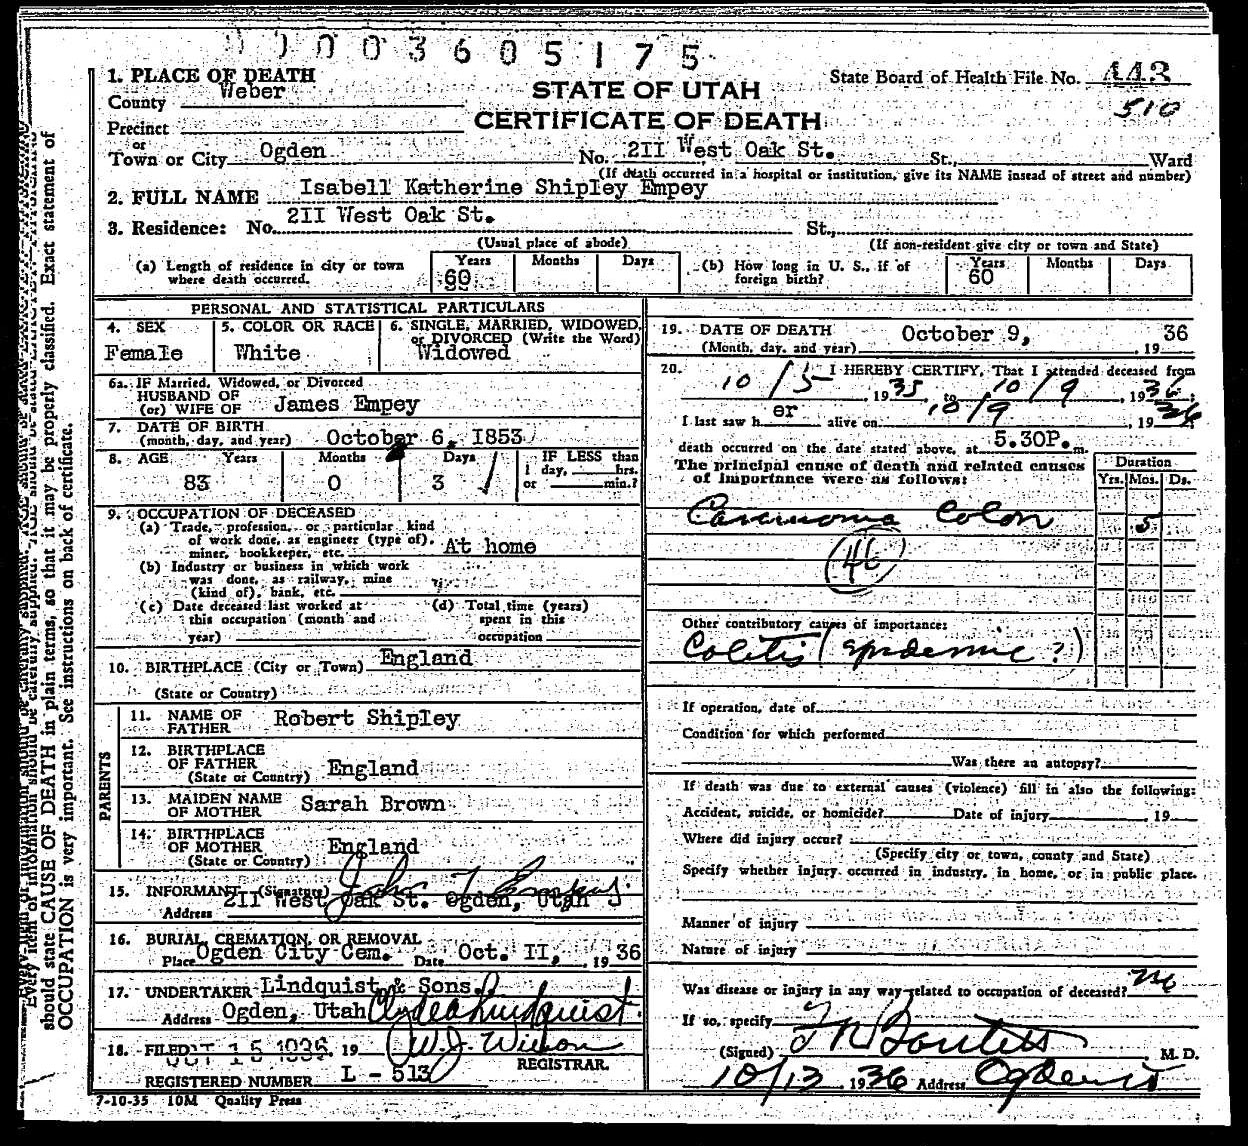 0003605175
1. PLACE OF DEATH
County Weber
STATE OF UTAH
State Board of Health File No. 443
CERTIFICATE OF DEATH
510
Precinct
or
Town or City Ogden No. 2II West Oak St. St., Ward
(If death occurred in a hospital or institution, give its NAME insead of street and number)
2. FULL NAME Isabell Katherine Shipley Empey
3. Residence: No. 2II West Oak St. St.,
(Usual place of abode) (If non-resident give city or town and State)
(a) Length of residence in city or town where death occurred. Years 60 Months Days
(b) How long in U. S., if of foreign birth? Years 60 Months Days
PERSONAL AND STATISTICAL PARTICULARS
4. SEX Female
5. COLOR OR RACE White
6. SINGLE, MARRIED, WIDOWED, or DIVORCED (Write the Word) Widowed
6a. IF Married, Widowed, or Divorced
HUSBAND OF
(or) WIFE OF James Empey
7. DATE OF BIRTH
(month, day, and year) October 6, I853
8. AGE Years Months Days IF LESS than
83 0 3 1 day, hrs.
or min.?
9. OCCUPATION OF DECEASED
(a) Trade, profession, or particular kind
of work done, as engineer (type of),
miner, bookkeeper, etc. At home
(b) Industry or business in which work
was done, as railway, mine
(kind of), bank, etc.
(c) Date deceased last worked at this occupation (month and year)
(d) Total time (years) spent in this occupation
10. BIRTHPLACE (City or Town) England
(State or Country)
PARENTS
11. NAME OF FATHER Robert Shipley
12. BIRTHPLACE OF FATHER
(State or Country) England
13. MAIDEN NAME OF MOTHER Sarah Brown
14. BIRTHPLACE OF MOTHER
(State or Country) England
15. INFORMANT (Signature) John T Empey
Address 2II West Oak St. Ogden, Utah
16. BURIAL, CREMATION, OR REMOVAL
Place Ogden City Cem. Date Oct. II, 1936
17. UNDERTAKER Lindquist & Sons.
Address Ogden, Utah Clyde Lindquist
18. FILED OCT 15 1936, 19 W.J. Wilson
REGISTRAR.
REGISTERED NUMBER L - 513
7-10-35 10M Quality Press
19. DATE OF DEATH October 9,
(Month, day, and year) , 1936
20. I HEREBY CERTIFY, That I attended deceased from
10/5, 1935, to 10/9, 1936
I last saw her alive on 10/9, 1936
death occurred on the date stated above, at 5.30P. m.
The principal cause of death and related causes of importance were as follows:
Duration
Yrs. Mos. Ds.
Carcinoma Colon 5
46
Other contributory causes of importance:
Colitis (epidemic?)
If operation, date of
Condition for which performed
Was there an autopsy?
If death was due to external causes (violence) fill in also the following:
Accident, suicide, or homicide? Date of injury 19
Where did injury occur?
(Specify city or town, county and State)
Specify whether injury occurred in industry, in home, or in public place.
Manner of injury
Nature of injury
Was disease or injury in any way related to occupation of deceased? No
If so, specify
(Signed) M. D.
10/13 1936 Address Ogden
should state CAUSE OF DEATH in plain terms, so that it may be properly classified. Exact statement of
OCCUPATION is very important. See instructions on back of certificate.